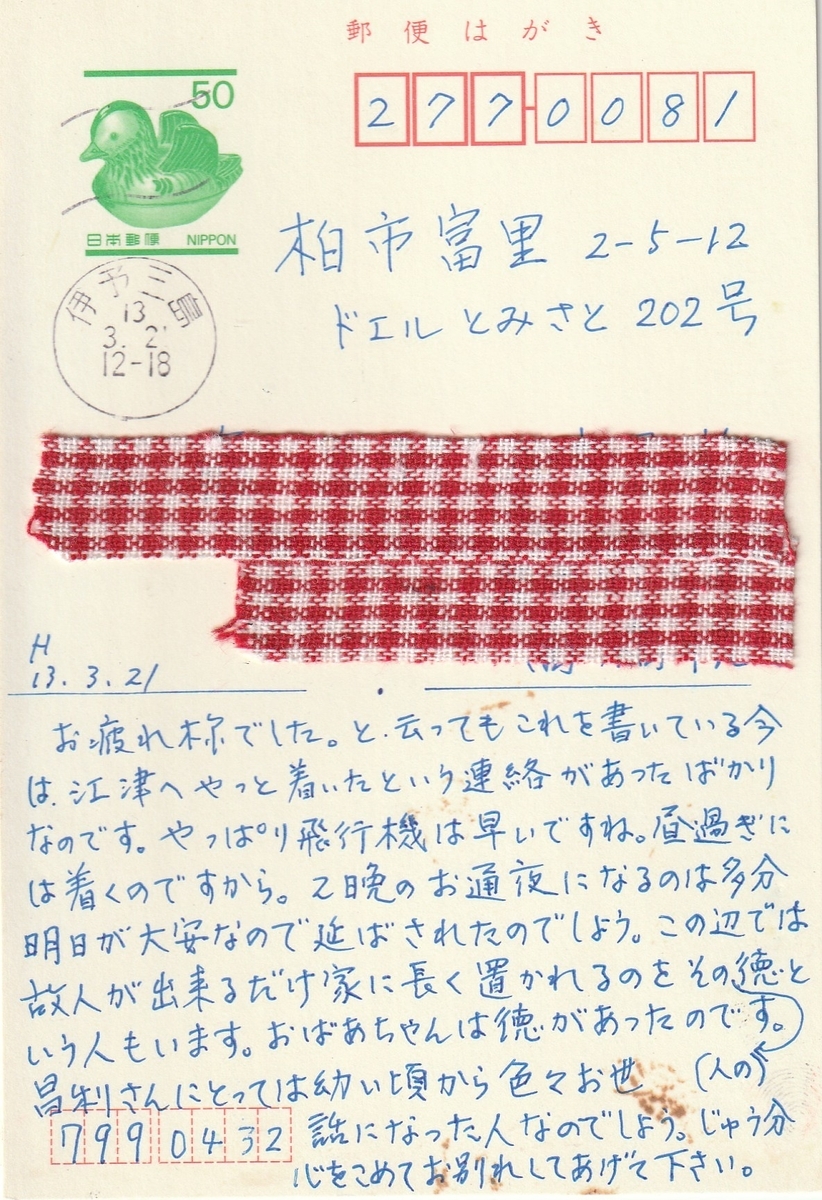 郵便はがき
50
日本郵便 NIPPON
277-0081
柏市富里 2-5-12
ドエルとみさと 202号
伊予三島
13
3. 21
12-18
H
13. 3. 21
お疲れ様でした。と云ってもこれを書いている今
は、江津へやっと着いたという連絡があったばかり
なのです。やっぱり飛行機は早いですね。昼過ぎに
は着くのですから。2晩のお通夜になるのは多分
明日が大安なので延ばされたのでしょう。この辺では
故人が出来るだけ家に長く置かれるのをその徳と
いう人もいます。おばあちゃんは徳があったのです。
(人の)
昌利さんにとっては幼い頃から色々お世
話になった人なのでしょう。じゅう分
心をこめてお別れしてあげて下さい。
7990432